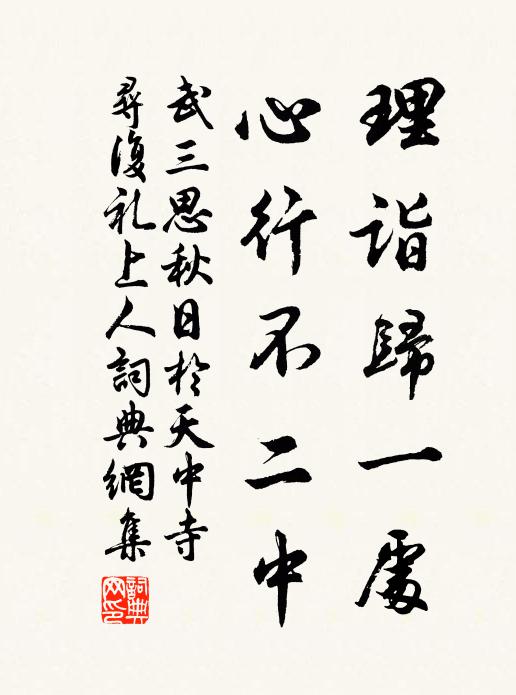 理詣歸一處
心行不二中
武三思秋日於天中寺
尋復礼上人詞典網集
詞典網印